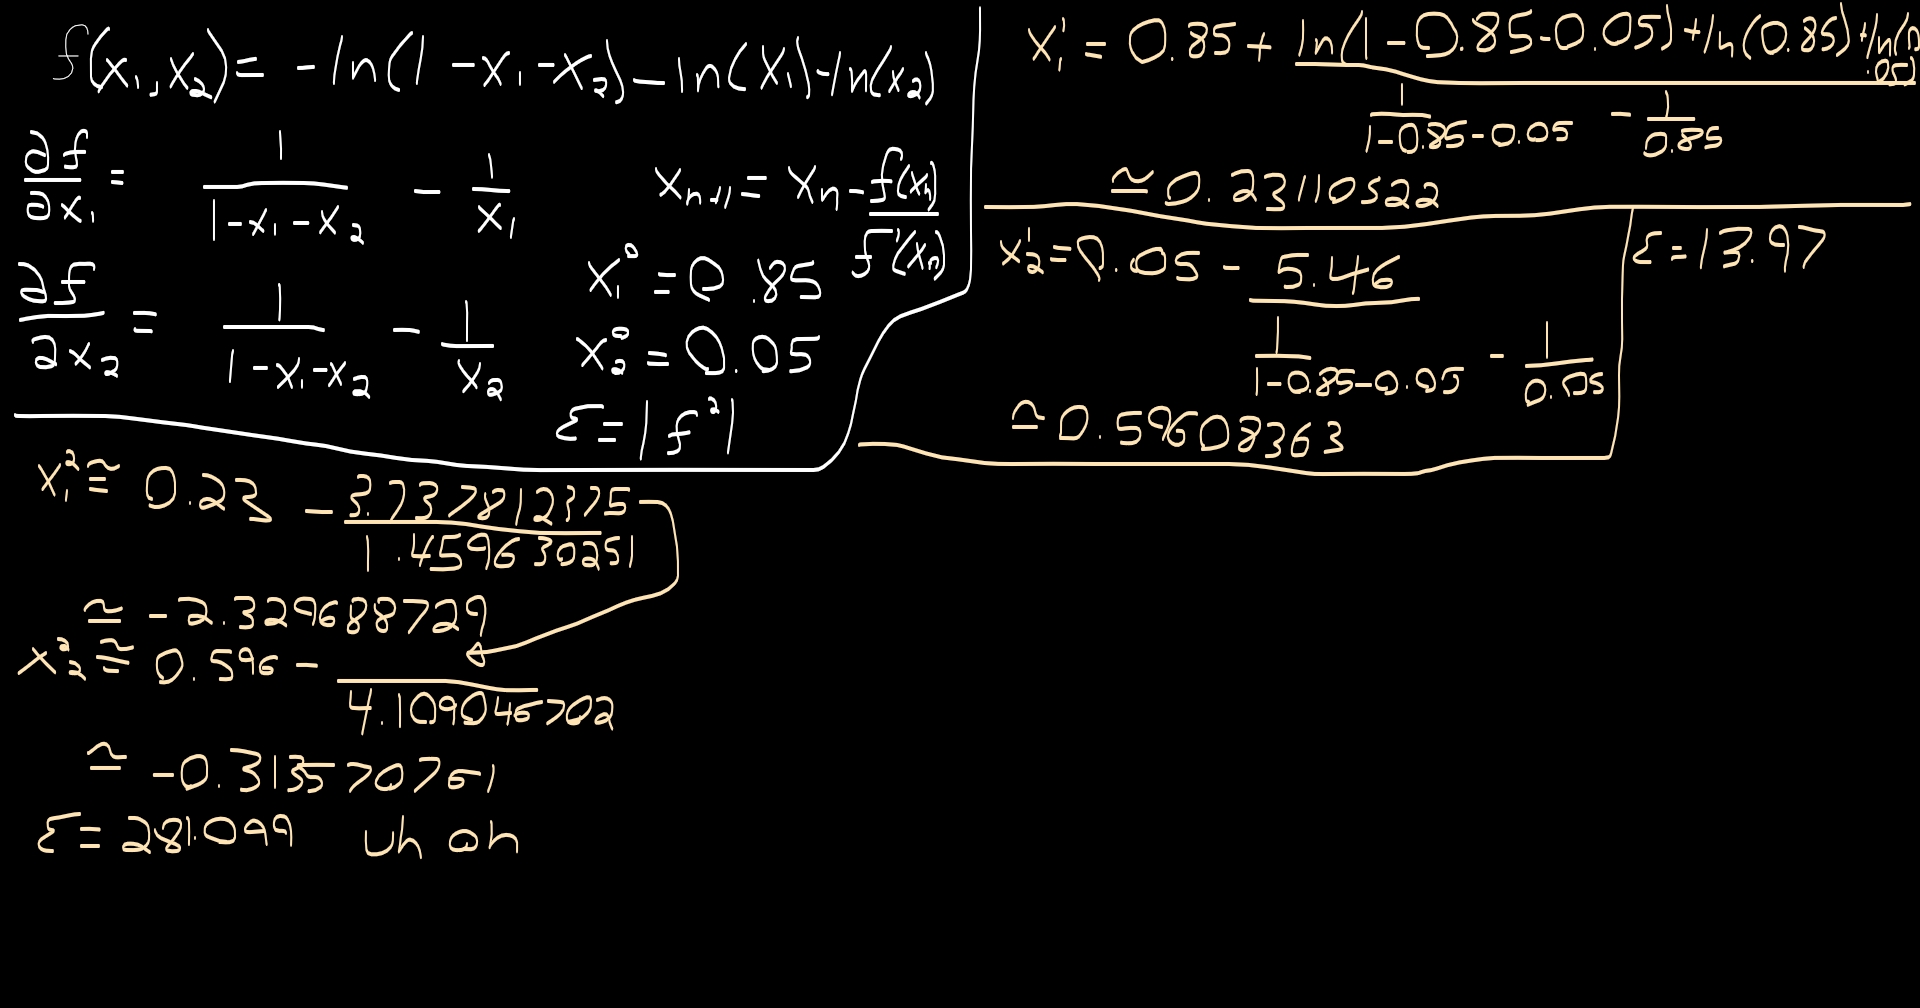 f(x₁,x₂)= -ln(1-x₁-x₂)-ln(x₁)-ln(x₂)
∂f/∂x₁ = 1/(1-x₁-x₂) - 1/x₁
x_{n+1} = x_n - f(x_n)/f'(x_n)
∂f/∂x₂ = 1/(1-x₁-x₂) - 1/x₂
x₁⁰=0.85
x₂⁰=0.05
ε=|f²|
x₁¹ = 0.85 + (ln(1-0.85-0.05)+ln(0.85)+ln(0.05))/(1/(1-0.85-0.05) - 1/0.85)
≃0.23110522
x₂¹=0.05 - 5.46/(1/(1-0.85-0.05) - 1/0.05)
≃0.59608363
ε=13.97
x₁²≅0.23 - 3.737812375/1.459630251
≃ -2.329688729
x₂²≅0.596 - /4.109045702
≃ -0.313570761
ε=281.099 uh oh